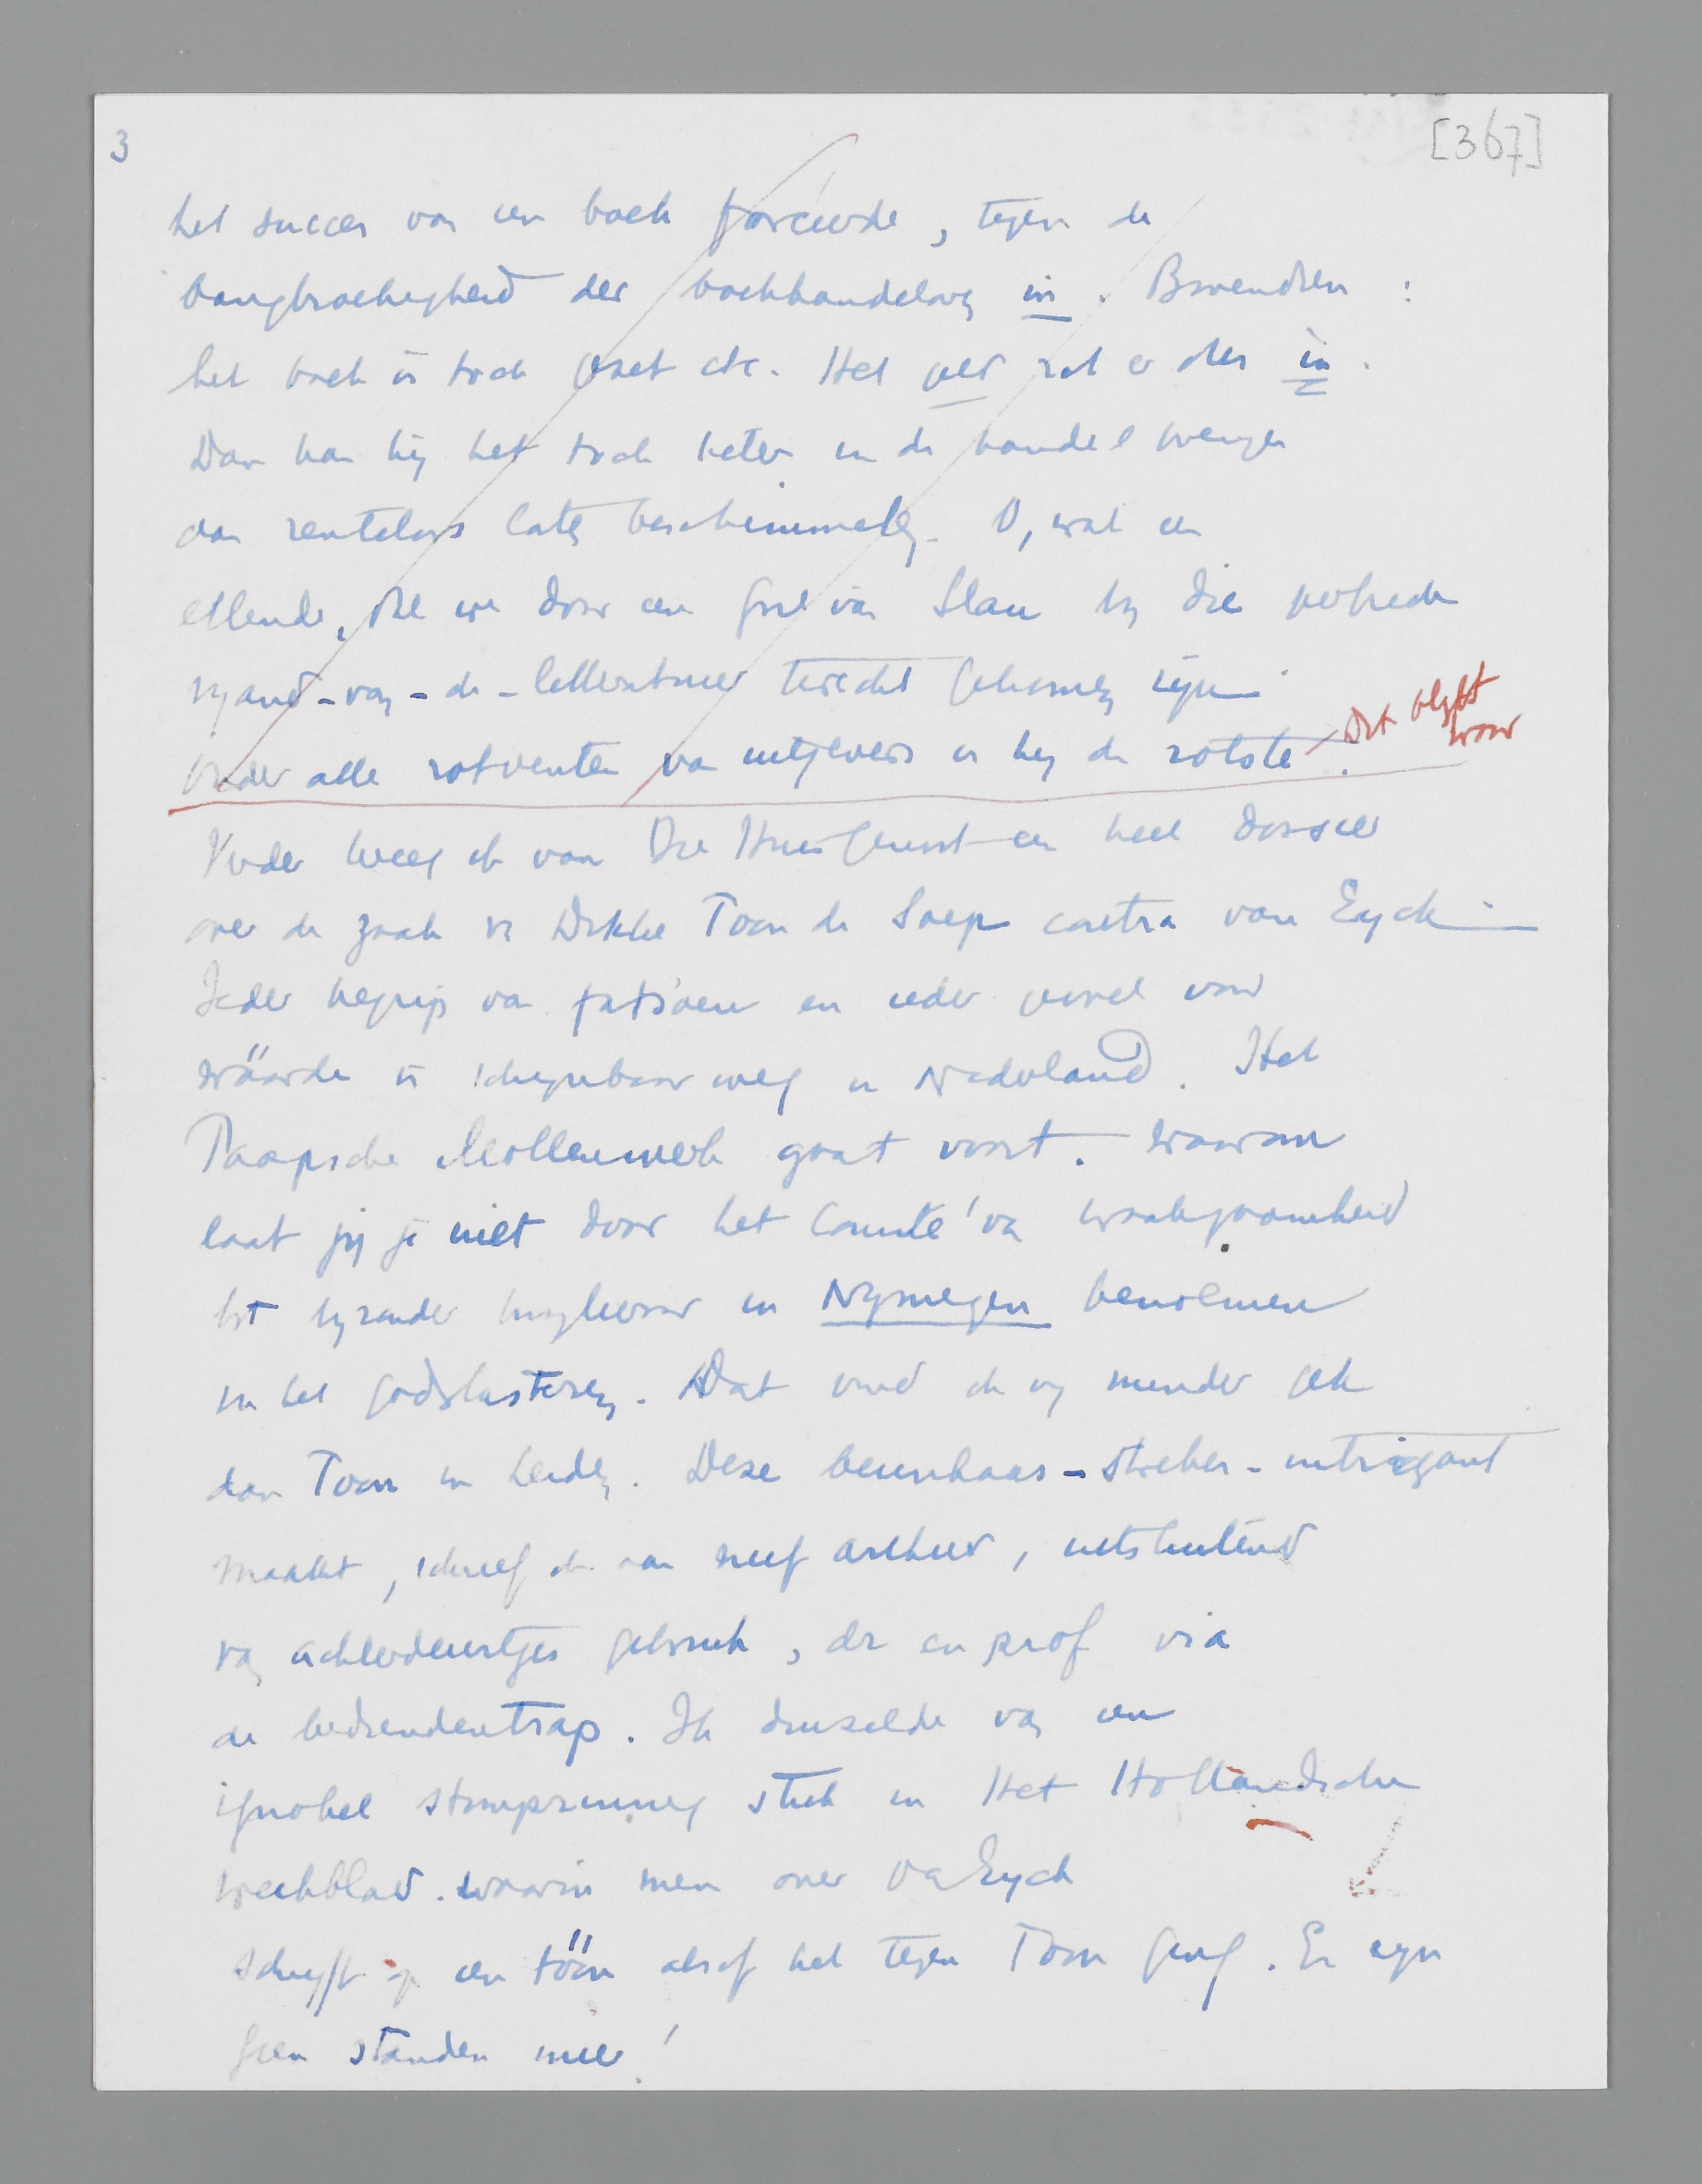 3
[367]
het succes van een boek forceerde, tegen de
bangbroekigheid der boekhandelaren in. Bovendien:
het boek is toch gezet etc. Het geld zit er dus in.
Dan kan hij het toch beter in de handel brengen
dan renteloos laten beschimmelen. O, wat een
ellende, dat we door een gril van Slau bij die
vijand-van-de-letterkunde terecht gekomen zijn.
Onder alle rotventen van uitgevers is hij de rotste.
Dit blijft
waar
Verder kreeg ik van Die Huisgunst een heel dossier
over de zaak v Dikke Toon de Soep contra van Eyck.
Ieder begrip van fatsoen en ieder gevoel voor
wäarde is schijnbaar weg in Nederland. Het
Paapsche Mollenwerk gaat voort. Waarom
laat jij je niet door het Comité va wraakgierigheid
tot bijzonder hoogleeraar in Nijmegen benoemen
in het godslasteren. Dat vind ik nog minder gek
dan Toon in Leiden. Deze beunhaas-streber-intrigant
maakt, schreef ik aan neef Arthur, uitsluitend
van achterdeurtjes gebruik, dr en prof via
de bediendentrap. Ik duizelde van een
ignobel stompzinnig stuk in Het Hollandsche
Weekblad. Waarin men over Va Eyck
schrijft op een töon alsof het tegen Toon ging. Er zijn
geen standen meer!